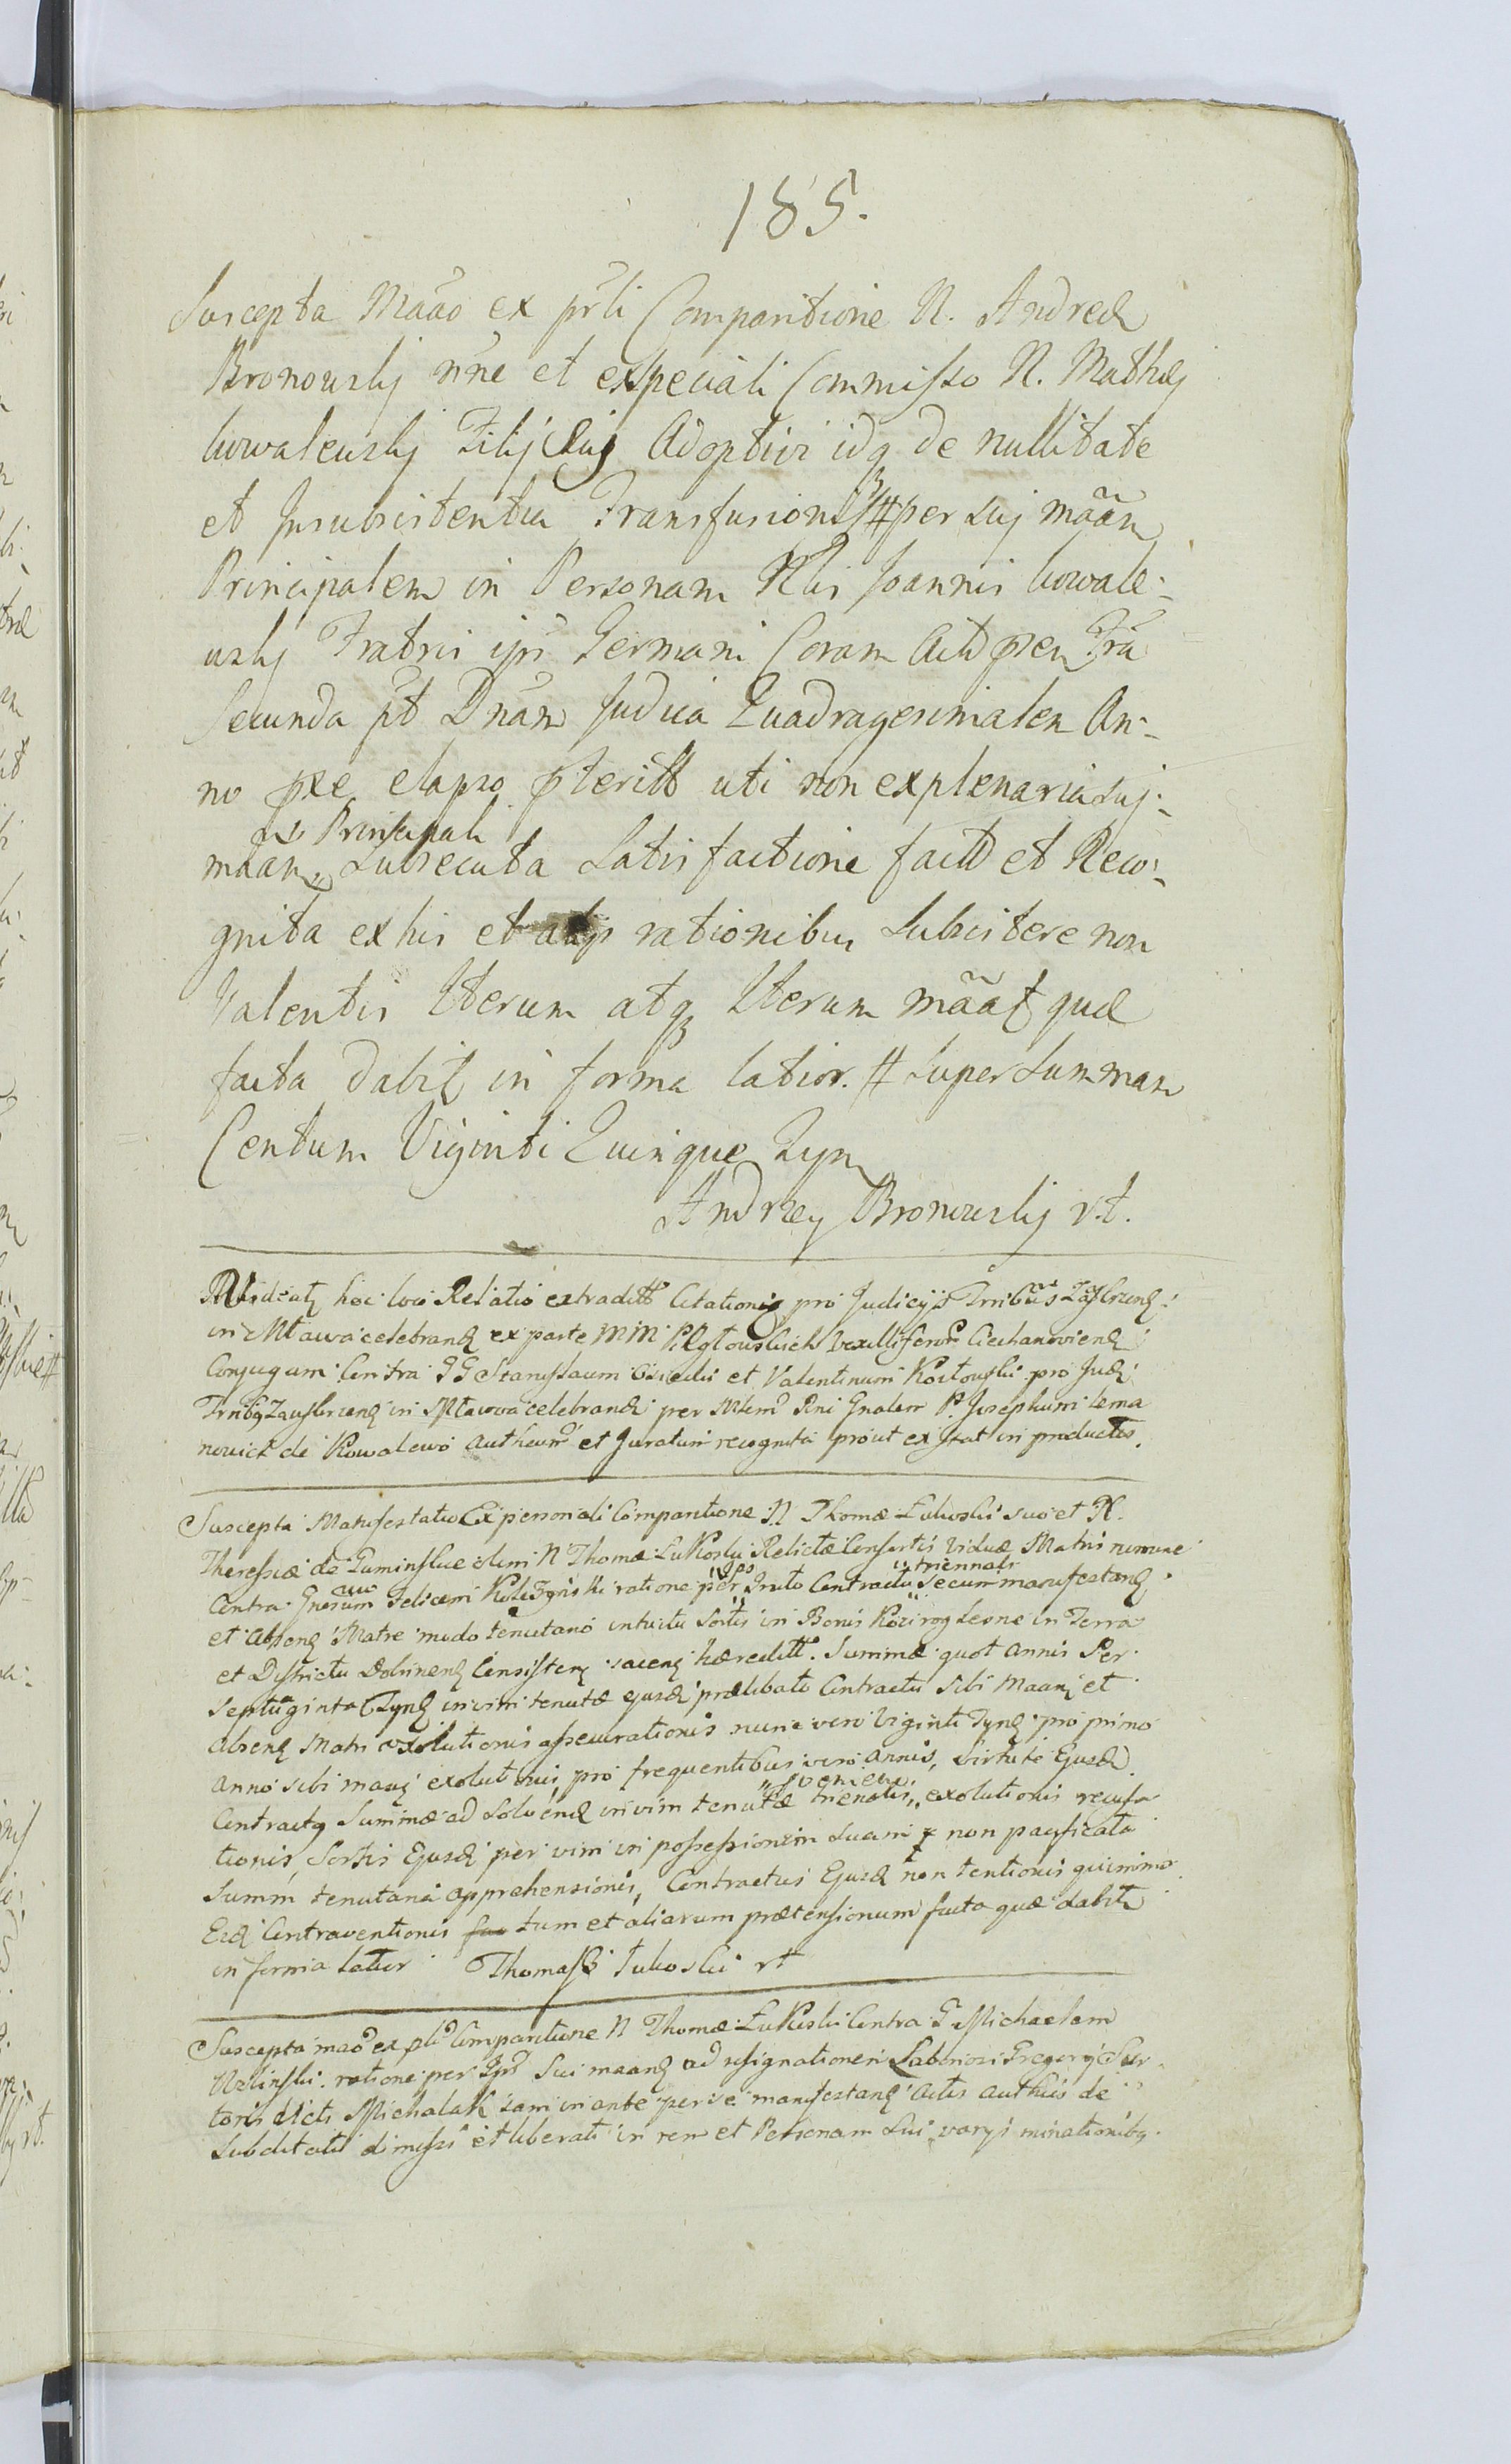 185.
Suscepta Mãão ex prli Comparitione N. Andreæ
Bronowskj nne et exspeciali Commisso N. Mathej
kowalewskj Filij sui Adoptivi idq de nullitate
et Insubsistentia Transfusionis # per suj mããn
Principalem in Personam Nlis Joannis kowale:
wskj Fratris ipś Germani Coram Actis pren Fria
Secunda pt Dnam Judica Quadragesimalen An:
no pxe elapso pteritt uti non explenaria suj:
sr Principali
maan. subsecuta satisfactione factt et Reco:
gnita ex his et alijs rationibus subsistere non
Valentis Iterum atq Iterum mããt quæ
facta dabit in forma latior. # super summam
Centum Viginti Quinque Zyn
Andrzey Bronowskj r.t.
Rideat hoc loco Relatio extraditt Citationis pro Judicijs Trribus Zaskrzen:
in Mława celebrand ex parte MM Pęgłowskich Vexilliferor Ciechanovien
Conjugum Contra GG Stanislaum Osiecki et Valentinum Kozłowski pro Jud:
Trnbq Zauskrzen in Mława celebrand per Mtem Rni Gnalem P. Josephum Lema
nowicz de Kowalewo Authenm et Juratum recognita prout extat in productis.
Suscepta Manifestatio Ex personali Comparitione N Thomæ Łukoski suo et N.
Theressiæ de Guminskie olim N Thomæ Łukoski Relictæ Consortis Viduæ Matris nomine
Contra Gnosum Felicem Kolczynski ratione per Ipso Inito Contractu triennali secum manifestanq
et Absenq Matre modo tenutario intuitu Sortis in Bonis Kozirog Lesne in Terra
et Districtu Dobrinenq Consisten jacenq hæreditt. Summæ quot annis Per
septuginta Zynq in vim tenutæ ejusd prælibato Contractu Sibi Maanq et
absenq Matri exolutionis assecurationis nunc vero Viginti Zynq pro primo
anno sibi maanq exolutionis, pro frequentibus vero annis, Virtute Ejusd
Contractq Summæ ad solvend in vim tenutæ trienalis, exolutionis recusa
tionis, Sortis Ejusd per vim in possessionem suam non pacificata
Summ tenutaria apprehensionis, Contractus Ejusd non tentionis quinimo
Eid Contraventionis tum et aliarum prætensionum facta quæ dabit
in forma latior Thomasz Łukoski rt
Suscepta mao ex pli Comparitione N Thomæ Łukoski Contra G Michaelem
ratione per Ips Sui maanq ad resignationem Laboriosi Gregorij Su
toris dicti Michalak jam in ante per se manifestanq Actis authcis de
Subditatu dimissi et liberati in rem et Personam Sui varys minationibq.